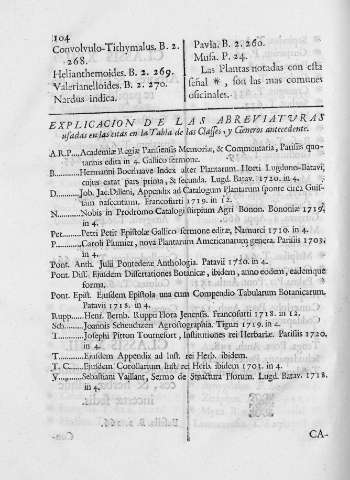 104
Convolvulo-Tithymalus. B. 2.
268.
Helianthemoides. B. 2. 269.
Valerianelloides. B. 2. 270.
Nardus indica.
Pavia. B. 2. 260.
Musa. P. 24.
Las Plantas notadas con esta
señal *, son las mas comunes
oficinales.
EXPLICACION DE LAS ABREVIATURAS
usadas en las citas en la Tabla de las Classes, y Generos antecedente.
A.R.P.... Academiæ Regiæ Parisiensis Memoriæ, & Commentaria, Parisiis quo-
tannis edita in 4. Gallico sermone.
B.......... Hermanni Boerhaave Index alter Plantarum Horti Lugduno-Batavi,
cujus extat pars prima, & secunda. Lugd. Batav. 1720. in 4.
D.......... Job. Jac. Dilleni, Appendix ad Catalogum Plantarum sponte circa Guis-
sam nascentium. Francofurti 1719. in 12.
N.......... Nobis in Prodromo Catalogi stirpium Agri Bonon. Bononiæ 1719.
in 4.
Pet........ Petri Petit Epistolæ Gallico sermone editæ, Namurci 1710. in 4.
P.......... Caroli Plumier, nova Plantarum Americanarum genera. Parisiis 1703.
in 4.
Pont. Anth. Julii Pontederæ Anthologia. Patavii 1720. in 4.
Pont. Diss. Ejusdem Dissertationes Botanicæ, ibidem, anno eodem, eademque
forma.
Pont. Epist. Ejusdem Epistola una cum Compendio Tabularum Botanicarum.
Patavii 1718. in 4.
Rupp...... Henr. Bernh. Ruppi Flora Jenensis. Francofurti 1718. in 12.
Sch........ Joannis Scheuchzeri Agrostographia. Tiguri 1719. in 4.
T.......... Josephi Pitton Tournefort, Institutiones rei Herbariæ. Parisiis 1720.
in 4.
T.......... Ejusdem Appendix ad Inst. rei Herb. ibidem.
T. C....... Ejusdem Corollarium Inst. rei Herb. ibidem 1703. in 4.
V.......... Sebastiani Vaillant, Sermo de Structura Florum. Lugd. Batav. 1718.
in 4.
CA-